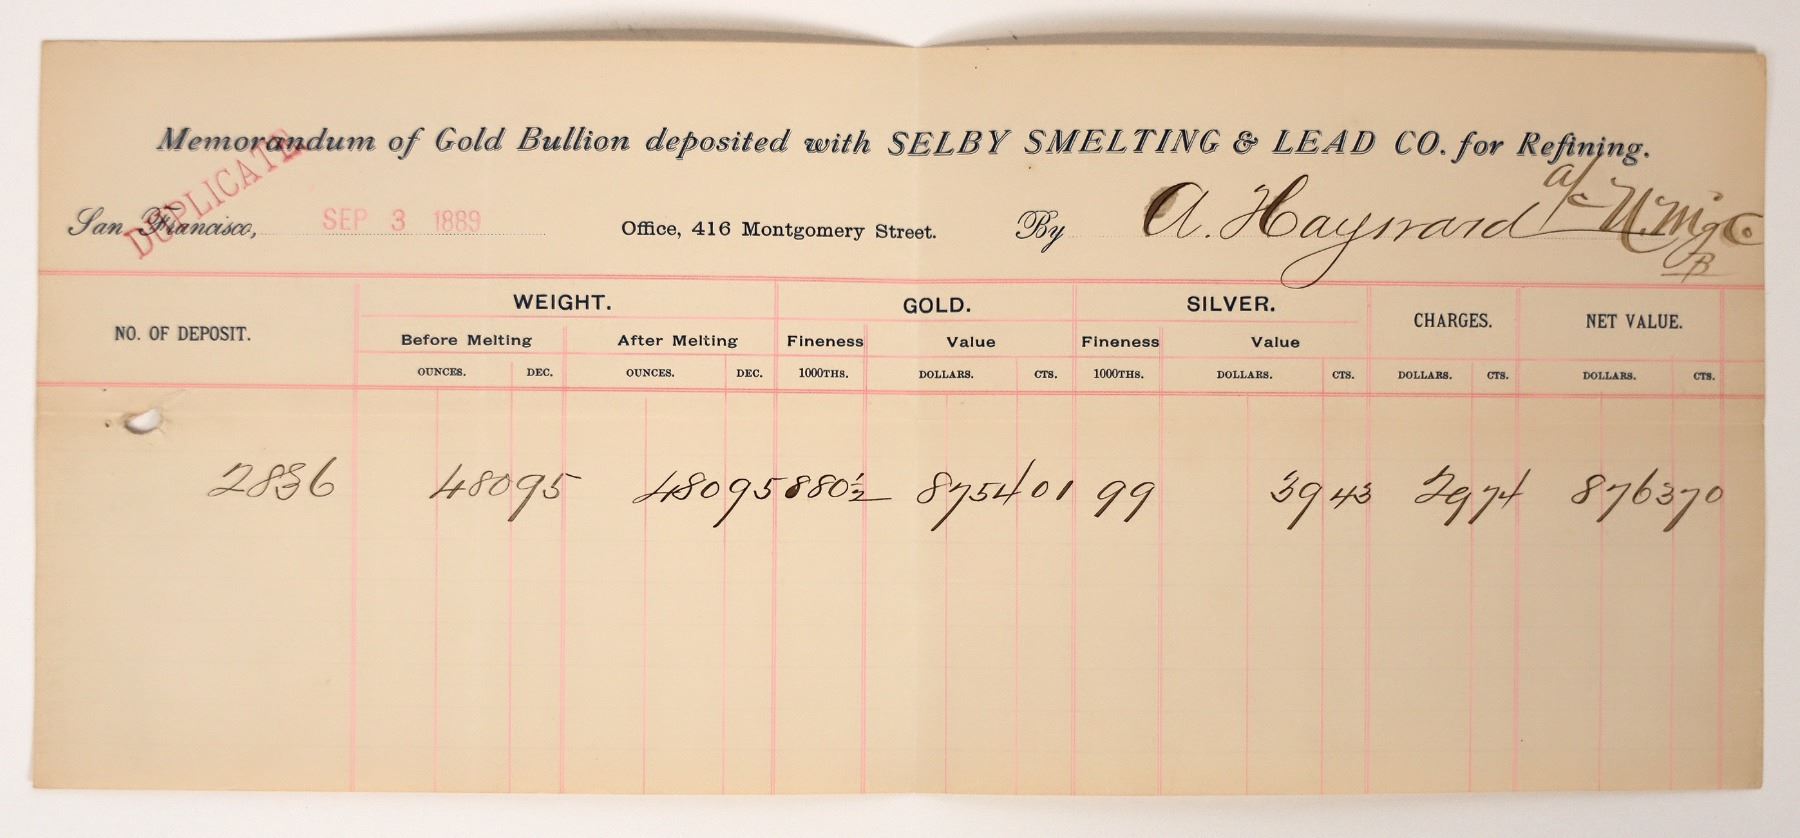 Memorandum of Gold Bullion deposited with SELBY SMELTING & LEAD CO. for Refining.
DUPLICATE
San Francisco, SEP 3 1889 Office, 416 Montgomery Street. By A. Hayward a/c U. M'g Co
B
NO. OF DEPOSIT. WEIGHT. GOLD. SILVER. CHARGES. NET VALUE.
Before Melting After Melting Fineness Value Fineness Value
OUNCES. DEC. OUNCES. DEC. 1000THS. DOLLARS. CTS. 1000THS. DOLLARS. CTS. DOLLARS. CTS. DOLLARS. CTS.
2836 480 95 480 95 880½ 8754 01 99 39 43 29 74 8763 70